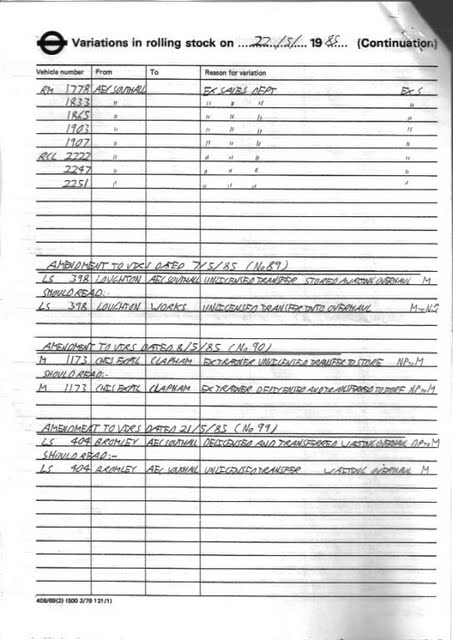 Variations in rolling stock on 22/5/ 1985 (Continuation)
Vehicle number From To Reason for variation
RM 1778 AEC SOUTHALL EX SALES DEPT EX S
1833 " " " " "
1865 " " " " "
1903 " " " " "
1907 " " " " "
RCL 2222 " " " " "
2247 " " " " "
2251 " " " " "
AMENDMENT TO VIRS DATED 7/5/85 (No 89)
LS 398 LOUGHTON AEC SOUTHALL UNLICENSED TRANSFER STORED AWAITING OVERHAUL M
SHOULD READ:-
LS 398 LOUGHTON WORKS UNLICENSED TRANSFER INTO OVERHAUL
AMENDMENT TO VIRS DATED 8/5/85 (No 90)
M 1173 CHIS EXPTL CLAPHAM EX TRAINER UNLICENSED TRANSFER TO STORE NP→M
SHOULD READ:-
M 1173 CHIS EXPTL CLAPHAM EX TRAINER DELICENSED AND TRANSFERRED TO STORE NP→M
AMENDMENT TO VIRS DATED 21/5/85 (No 99)
LS 404 BROMLEY AEC SOUTHALL DELICENSED AND TRANSFERRED WAITING OVERHAUL OP→M
SHOULD READ:-
LS 404 BROMLEY AEC SOUTHALL UNLICENSED TRANSFER WAITING OVERHAUL M
409/69(2) (500 2/79 121/1)